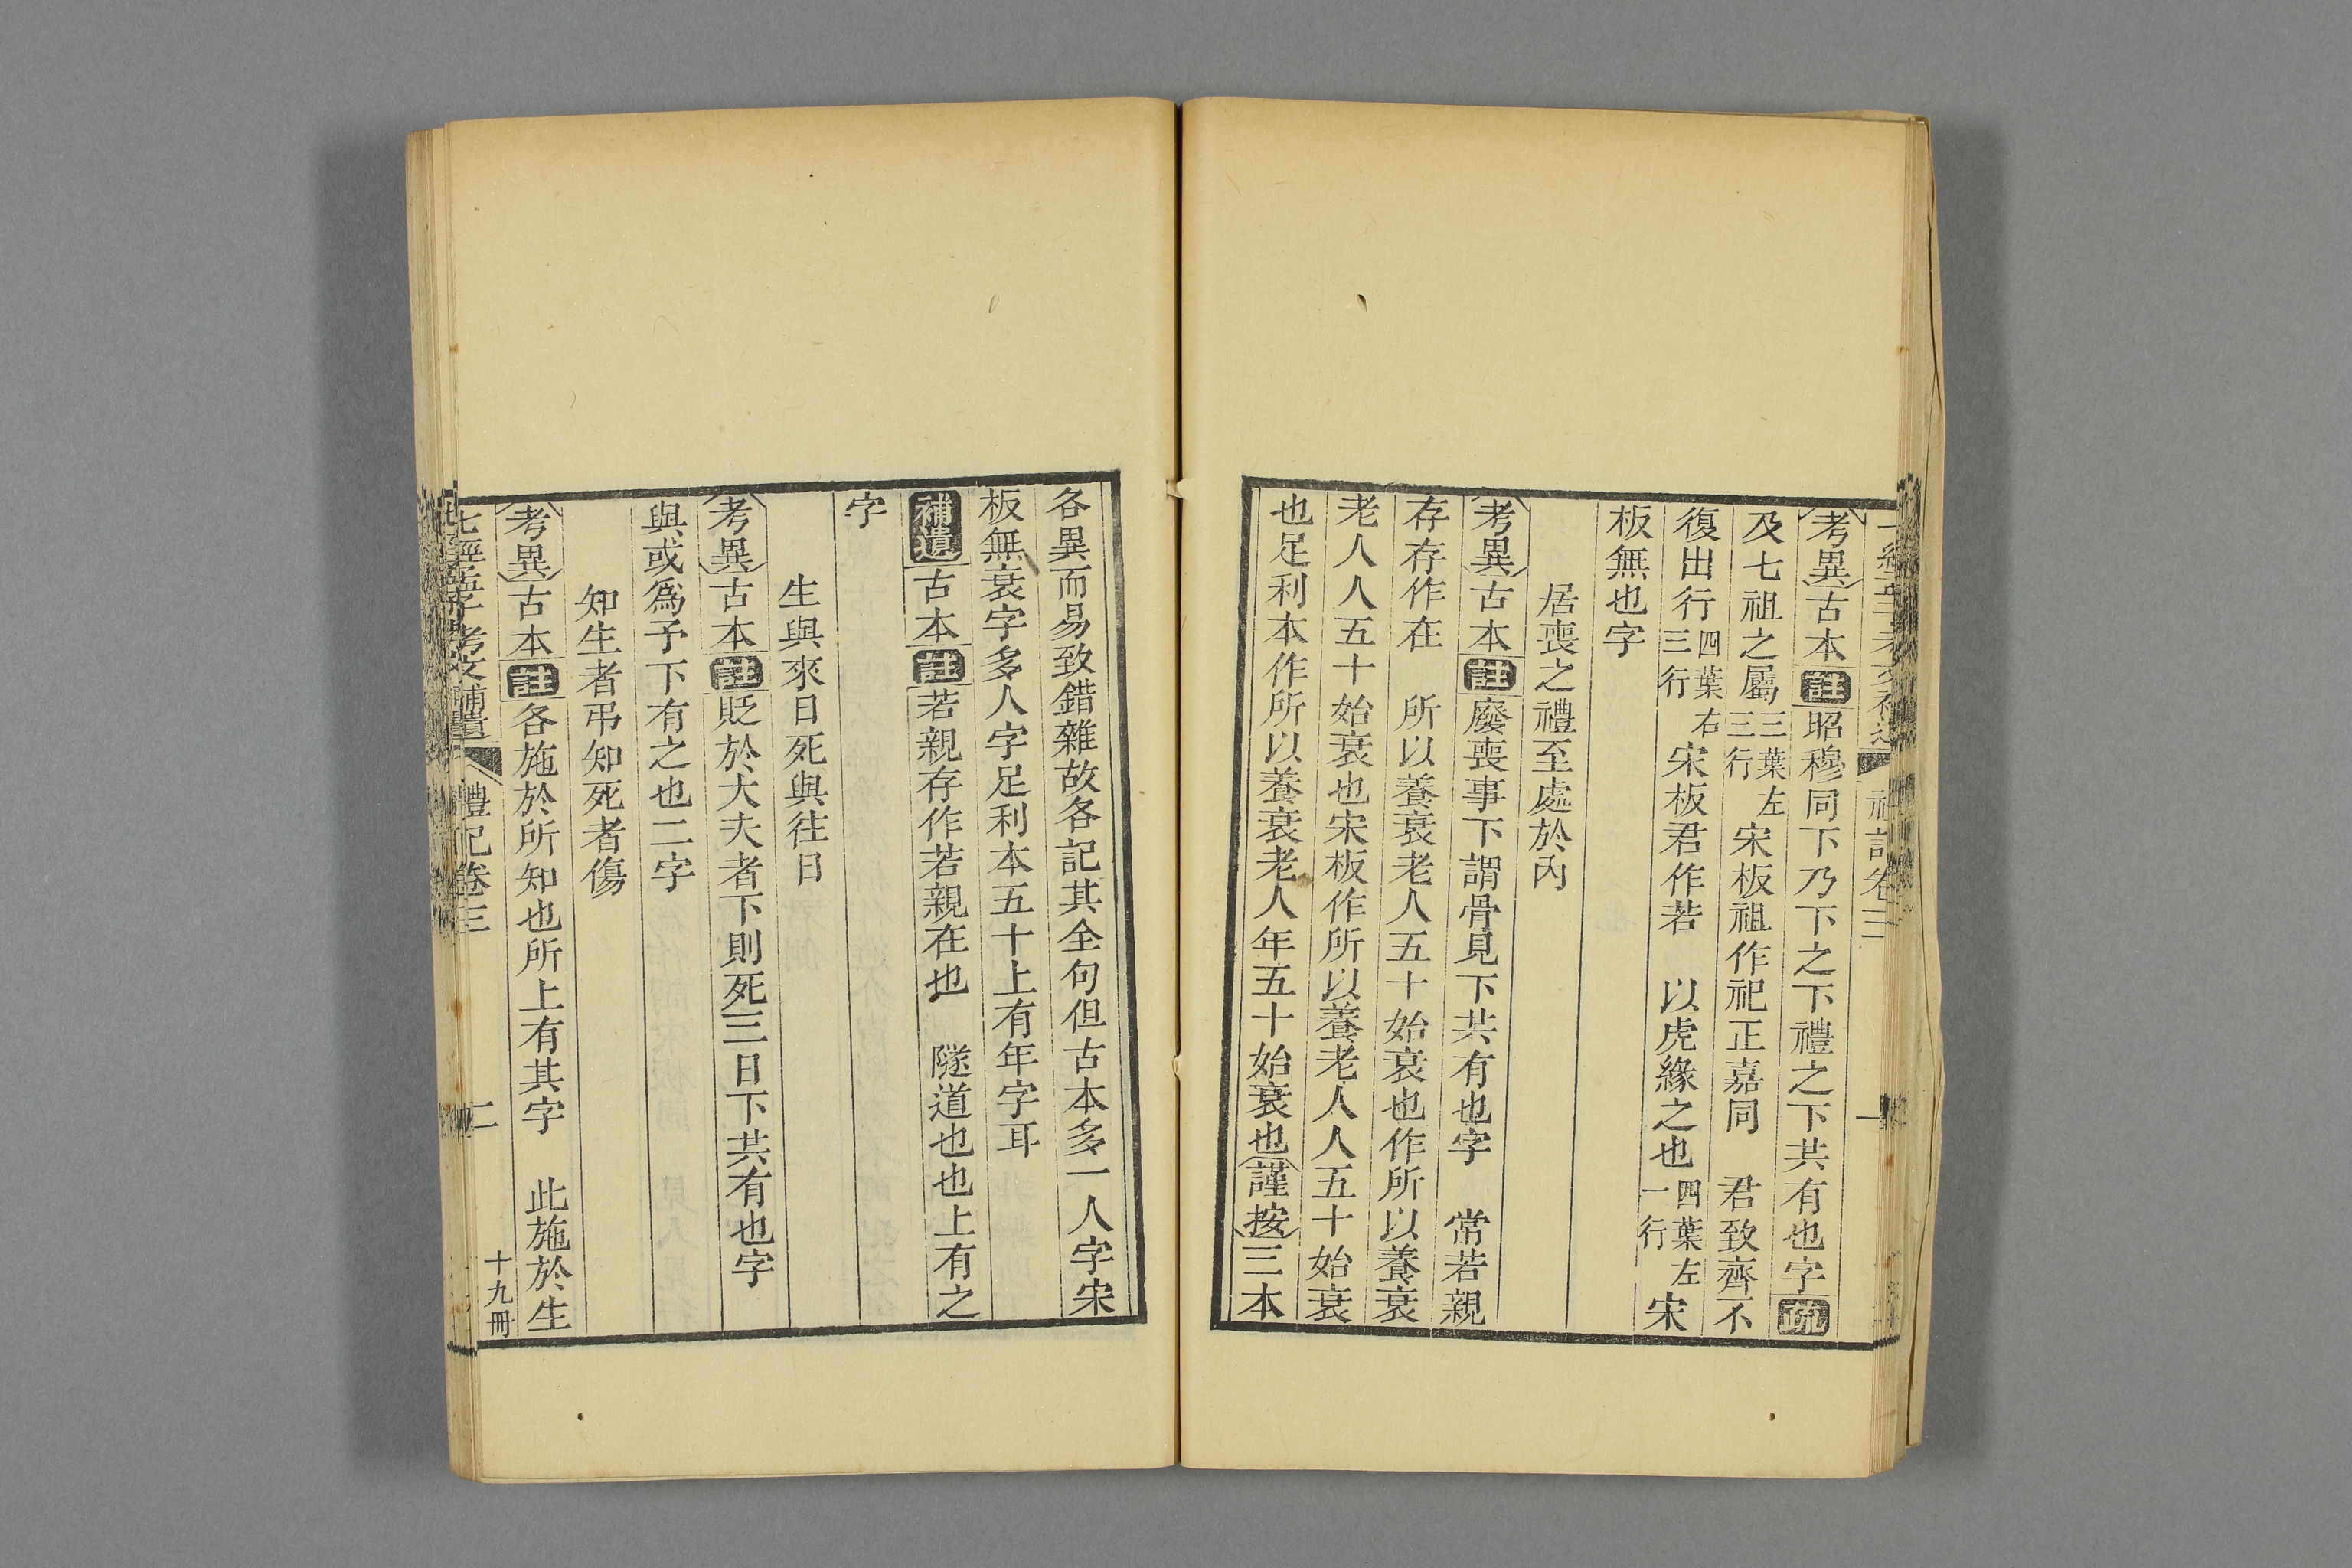 考異古本註昭穆同下乃下之下禮之下共有也字疏
及七祖之屬三葉左三行宋板祖作祀正嘉同　君致齊不
復出行四葉右三行宋板君作若　以虎緣之也四葉左一行宋
板無也字
居喪之禮至處於內
考異古本註廢喪事下謂骨見下共有也字　常若親
存存作在　所以養衰老人五十始衰也作所以養衰
老人人五十始衰也宋板作所以養老人人五十始衰
也足利本作所以養衰老人年五十始衰也謹按三本
各異而易致錯雜故各記其全句但古本多一人字宋
板無衰字多人字足利本五十上有年字耳
補遺古本註若親存作若親在也　隧道也也上有之
字
生與來日死與往日
考異古本註貶於大夫者下則死三日下共有也字
與或為予下有之也二字
知生者弔知死者傷
考異古本註各施於所知也所上有其字　此施於生
七經孟子考文補遺　禮記卷三　二　十九冊